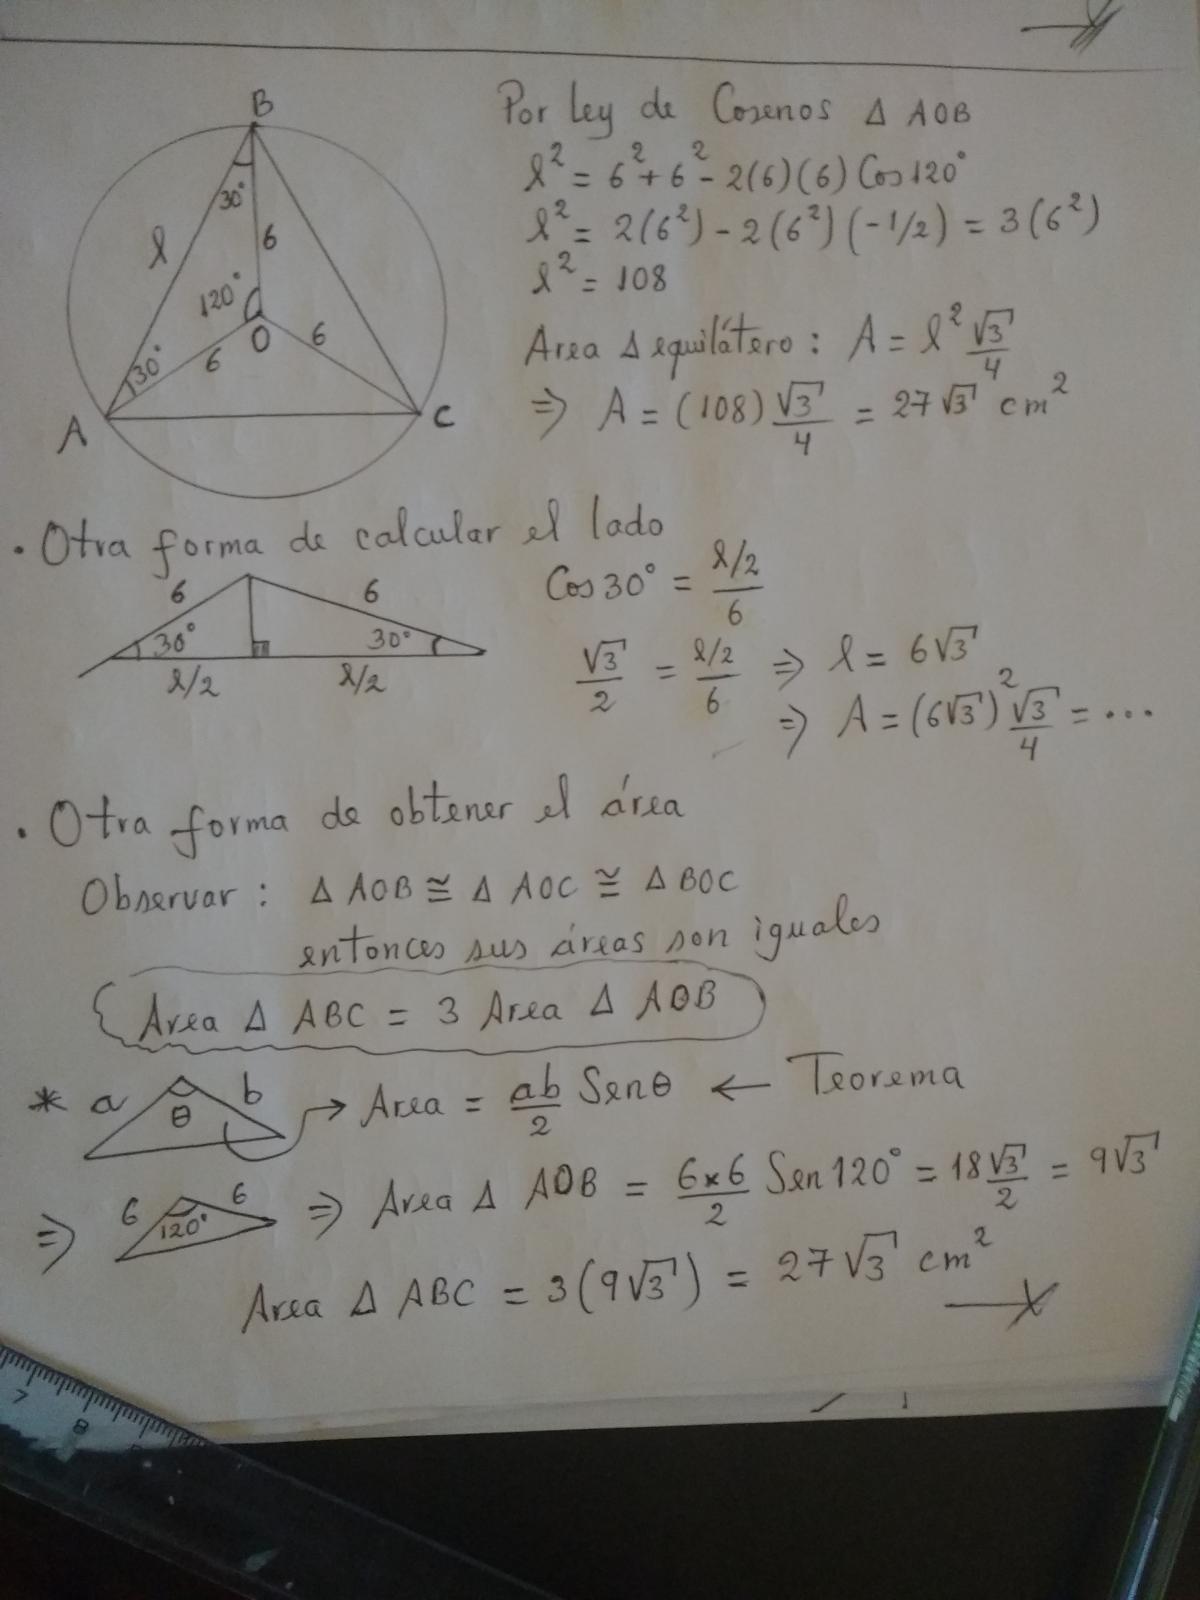 B
30°
l
6
120°
O
6
6
30°
A
C
Por Ley de Cosenos Δ AOB
l² = 6² + 6² - 2(6)(6) Cos 120°
l² = 2(6²) - 2(6²)(-1/2) = 3(6²)
l² = 108
Area Δ equilátero : A = l² √3/4
⇒ A = (108) √3/4 = 27√3 cm²
• Otra forma de calcular el lado
6 6
30° 30°
l/2 l/2
Cos 30° = (l/2)/6
√3/2 = (l/2)/6 ⇒ l = 6√3
⇒ A = (6√3)² √3/4 = ...
• Otra forma de obtener el área
Observar : Δ AOB ≅ Δ AOC ≅ Δ BOC
entonces sus áreas son iguales
Area Δ ABC = 3 Area Δ AOB
* a b θ → Area = ab/2 Sen θ ← Teorema
⇒ 6 6 120° ⇒ Area Δ AOB = 6×6/2 Sen 120° = 18 √3/2 = 9√3
Area Δ ABC = 3(9√3) = 27√3 cm²
7 8